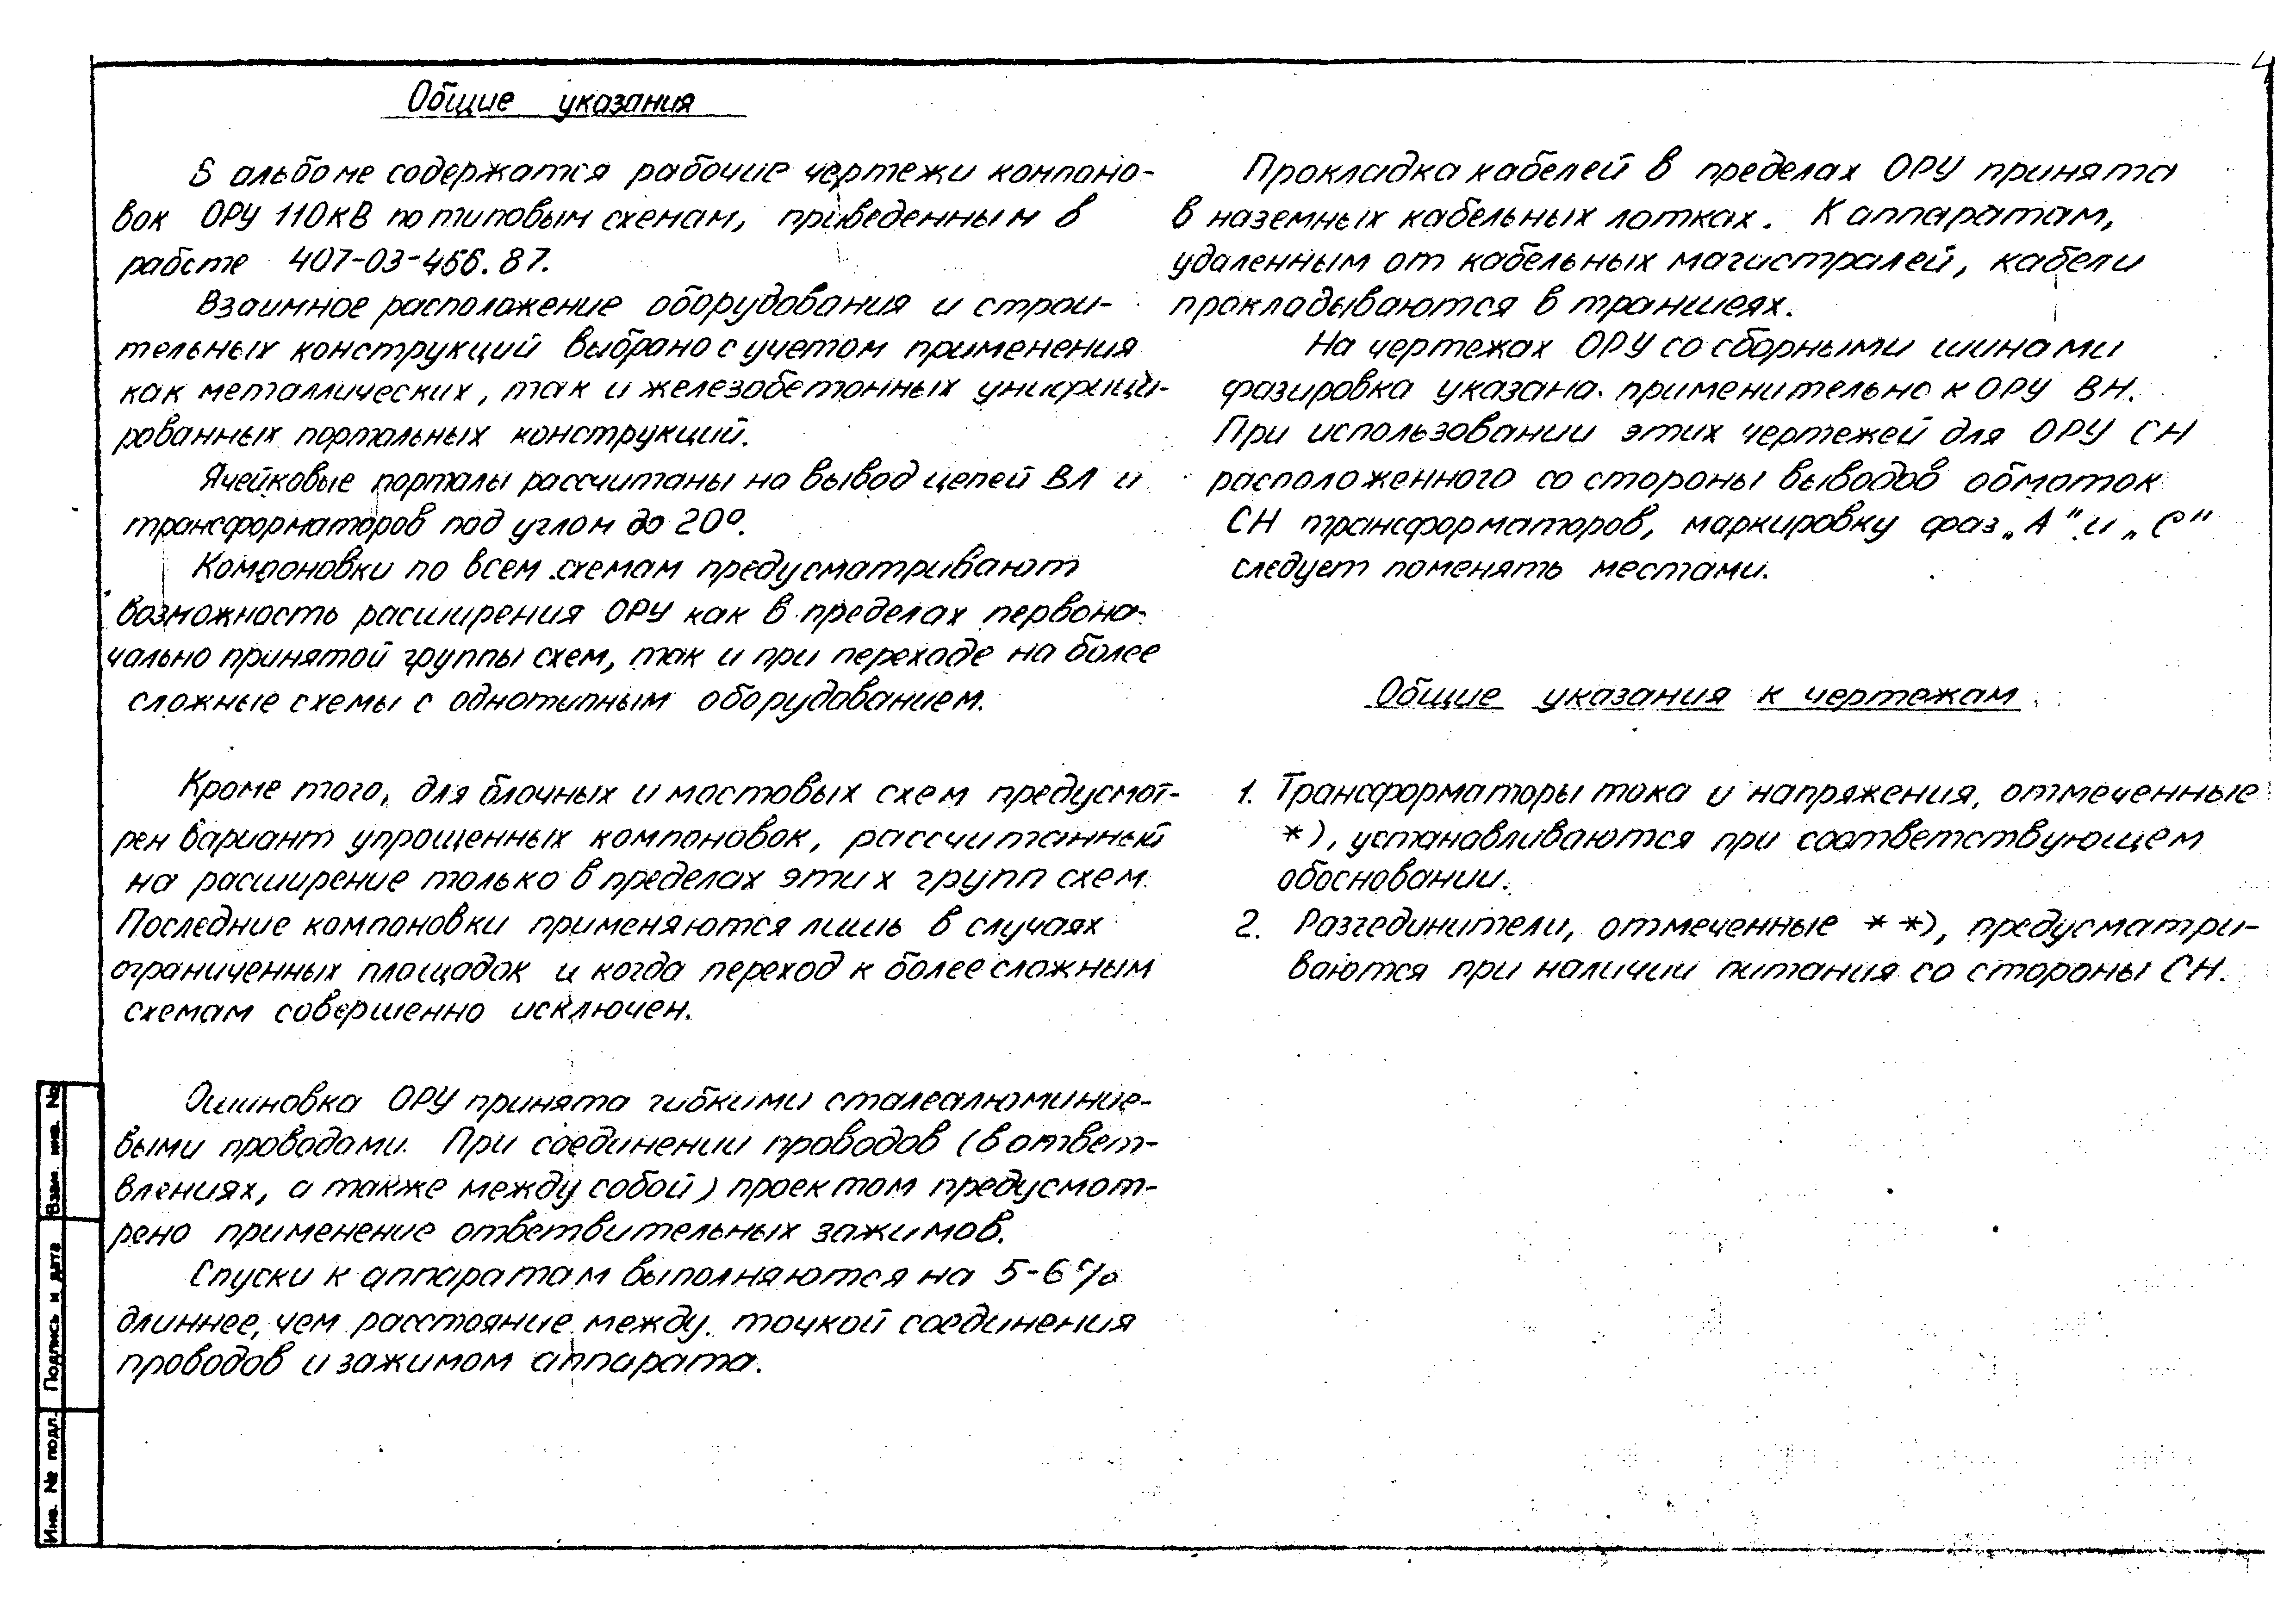 4
Общие указания
В альбоме содержатся рабочие чертежи компоно-
вок ОРУ 110кВ по типовым схемам, приведенным в
работе 407-03-456.87.
Взаимное расположение оборудования и строи-
тельных конструкций выбрано с учетом применения
как металлических, так и железобетонных унифици-
рованных портальных конструкций.
Ячейковые порталы рассчитаны на вывод цепей ВЛ и
трансформаторов под углом до 20°.
Компоновки по всем схемам предусматривают
возможность расширения ОРУ как в пределах первона-
чально принятой группы схем, так и при переходе на более
сложные схемы с однотипным оборудованием.
Кроме того, для блочных и мостовых схем предусмот-
рен вариант упрощенных компоновок, рассчитанный
на расширение только в пределах этих групп схем.
Последние компоновки применяются лишь в случаях
ограниченных площадок и когда переход к более сложным
схемам совершенно исключен.
Ошиновка ОРУ принята гибкими сталеалюминие-
выми проводами. При соединении проводов (в ответ-
влениях, а также между собой) проектом предусмот-
рено применение ответвительных зажимов.
Спуски к аппаратам выполняются на 5-6%
длиннее, чем расстояние между точкой соединения
проводов и зажимом аппарата.
Прокладка кабелей в пределах ОРУ принята
в наземных кабельных лотках. К аппаратам,
удаленным от кабельных магистралей, кабели
прокладываются в траншеях.
На чертежах ОРУ со сборными шинами
фазировка указана применительно к ОРУ ВН.
При использовании этих чертежей для ОРУ СН
расположенного со стороны выводов обмоток
СН трансформаторов, маркировку фаз „А" и „С"
следует поменять местами.
Общие указания к чертежам
1. Трансформаторы тока и напряжения, отмеченные
*), устанавливаются при соответствующем
обосновании.
2. Разъединители, отмеченные **), предусматри-
ваются при наличии питания со стороны СН.
Взам. инв. №
Подпись и дата
Инв. № подл.